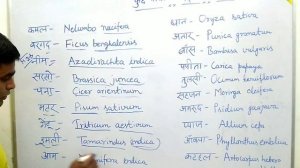 कमल- Nelumbo nucifera
बरगद- Ficus benghalensis
नीम- Azadirachta indica
सरसों- Brassica juncea
चना- Cicer arientinum
मटर- Pisum sativum
गेहूँ- Triticum aestivum
इमली- Tamarindus indica
आम- indica
धान- Oryza sativa
अनार- Punica granatum
बाँस- Bambusa vulgaris
पपीता- Carica papaya
तुलसी- Ocimum
सहजन- Moringa oleifera
अमरुद- Psidium guajava
प्याज- Allium cepa
आँवला- Phyllanthus emblica
कटहल- Artocarpus